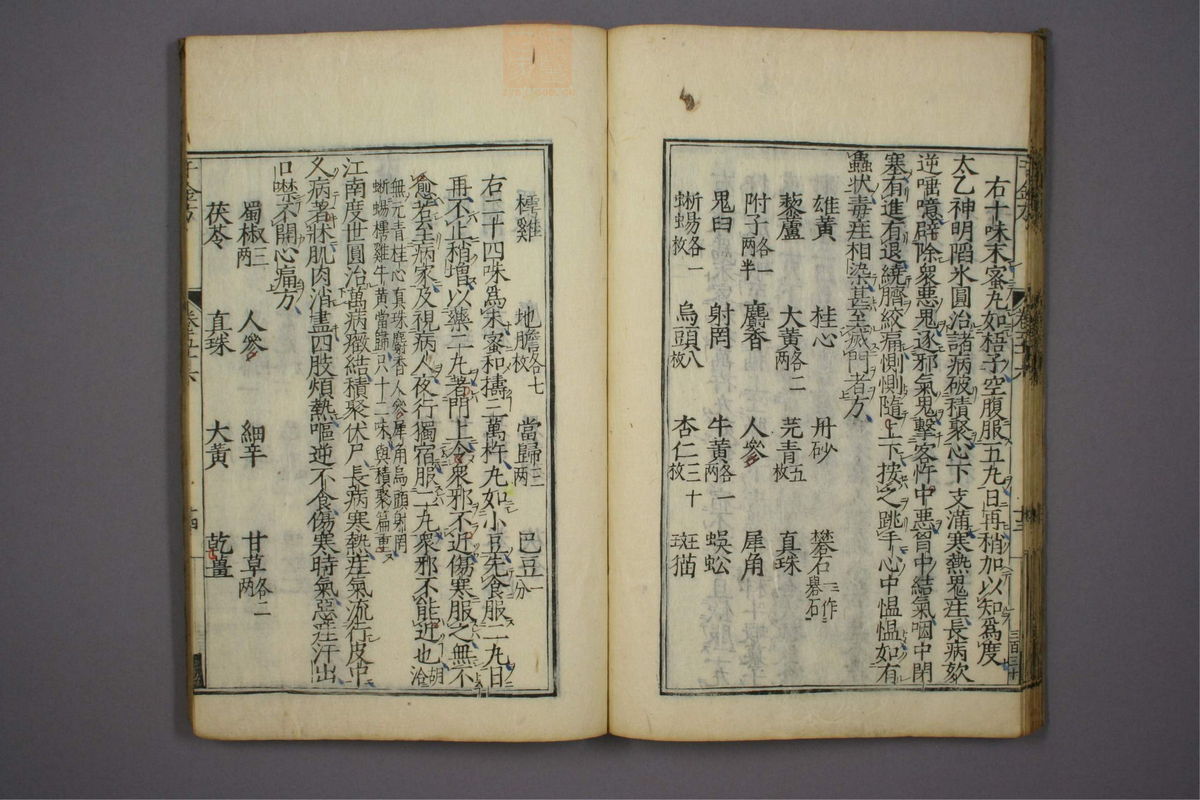 右十味末蜜丸如梧子空腹服五丸日再稍加以知爲度
太乙神明陷氷圓治諸病破積聚心下支滿寒熱鬼疰長病欬
逆唾噫辟除衆惡鬼逐邪氣鬼擊客忤中惡胷中結氣咽中閉
塞有進有退繞臍絞痛惻惻隨上下按之跳手心中慍慍如有
蟲狀毒疰相染甚至滅門者方
雄黃 桂心 丹砂 礬石一作礜石
藜蘆 大黃各二兩 芫青五枚 真珠
附子各一兩半 麝香 人參 犀角
鬼臼 射罔 牛黃各一兩 蜈蚣
蜥蜴各一枚 烏頭八枚 杏仁三十枚 斑猫
樗雞 地膽各七枚 當歸三兩 巴豆一分
右二十四味爲末蜜和擣三萬杵丸如小豆先食服二丸日
再不止稍增以藥二丸著門上令衆邪不近傷寒服之無不
愈若至病家及視病人夜行獨宿服二丸衆邪不能近也胡洽
無芫青桂心真珠麝香人參犀角烏頭射罔
蜥蜴樗雞牛黃當歸只十二味與積聚篇重
江南度世圓治萬病癥結積聚伏尸長病寒熱疰氣流行皮中
久病著牀肌肉消盡四肢煩熱嘔逆不食傷寒時氣惡疰汗出
口噤不開心痛方
蜀椒三兩 人參 細辛 甘草各二兩
茯苓 真珠 大黃 乾薑